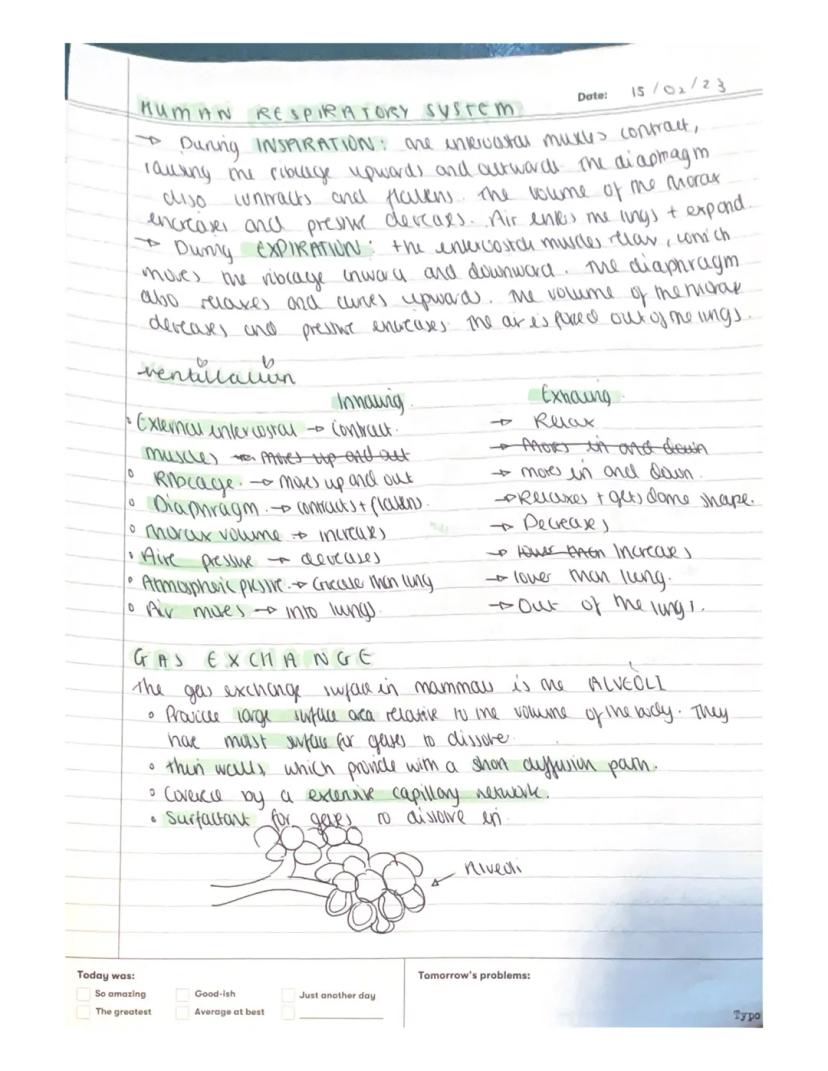 Date: 15/02/23
HUMAN RESPIRATORY SYSTEM
→ During INSPIRATION: the intercostal muscles contract,
causing the ribcage upwards and outwards. The diaphragm
also contracts and flattens. The volume of the thorax
increases and pressure decreases. Air enters the lungs + expand.
→ During EXPIRATION: the intercostal muscles relax, which
moves the ribcage inward and downward. The diaphragm
also relaxes and curves upwards. The volume of the thorax
decreases and pressure increases. The air is forced out of the lungs.
ventillation
Inhaling. Exhaling.
• External intercostal → Contract. → Relax
muscles → moves up and out → Moves in and down
• Ribcage. → Moves up and out → moves in and down.
• Diaphragm. → contracts + flattens. → Relaxes + gets dome shape.
• Thorax volume → increases → Decreases
• Aire pressure → decreases → lower than Increases
• Atmospheric pressure. → Greater than lung → lower than lung.
• Air moves → into lungs. → Out of the lungs.
GAS EXCHANGE
The gas exchange surface in mammals is the ALVEOLI
• Provide large surface area relative to the volume of the body. They
have moist surface for gases to dissolve.
• Thin walls, which provide with a short diffusion path.
• Covered by a extensive capillary network.
• Surfactant for gases to dissolve in
Alveoli
Today was:
So amazing Good-ish Just another day
The greatest Average at best
Tomorrow's problems:
Typo